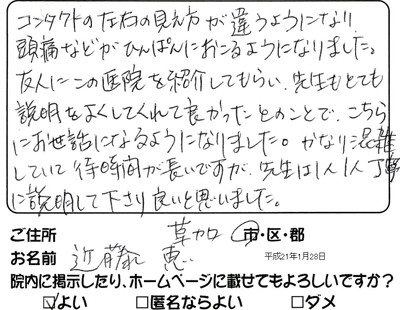 コンタクトの左右の見え方が違うようになり
頭痛などがひんぱんにおこるようになりました。
友人にこの医院を紹介してもらい、先生もとても
説明をよくしてくれて良かったとのことで、こちら
にお世話になるようになりました。かなり混雑
していて待時間が長いですが、先生は1人1人丁寧
に説明して下さり良いと思いました。
ご住所 草加 市・区・郡
お名前 近藤 恵 平成21年1月28日
院内に掲示したり、ホームページに載せてもよろしいですか?
☑よい □匿名ならよい □ダメ